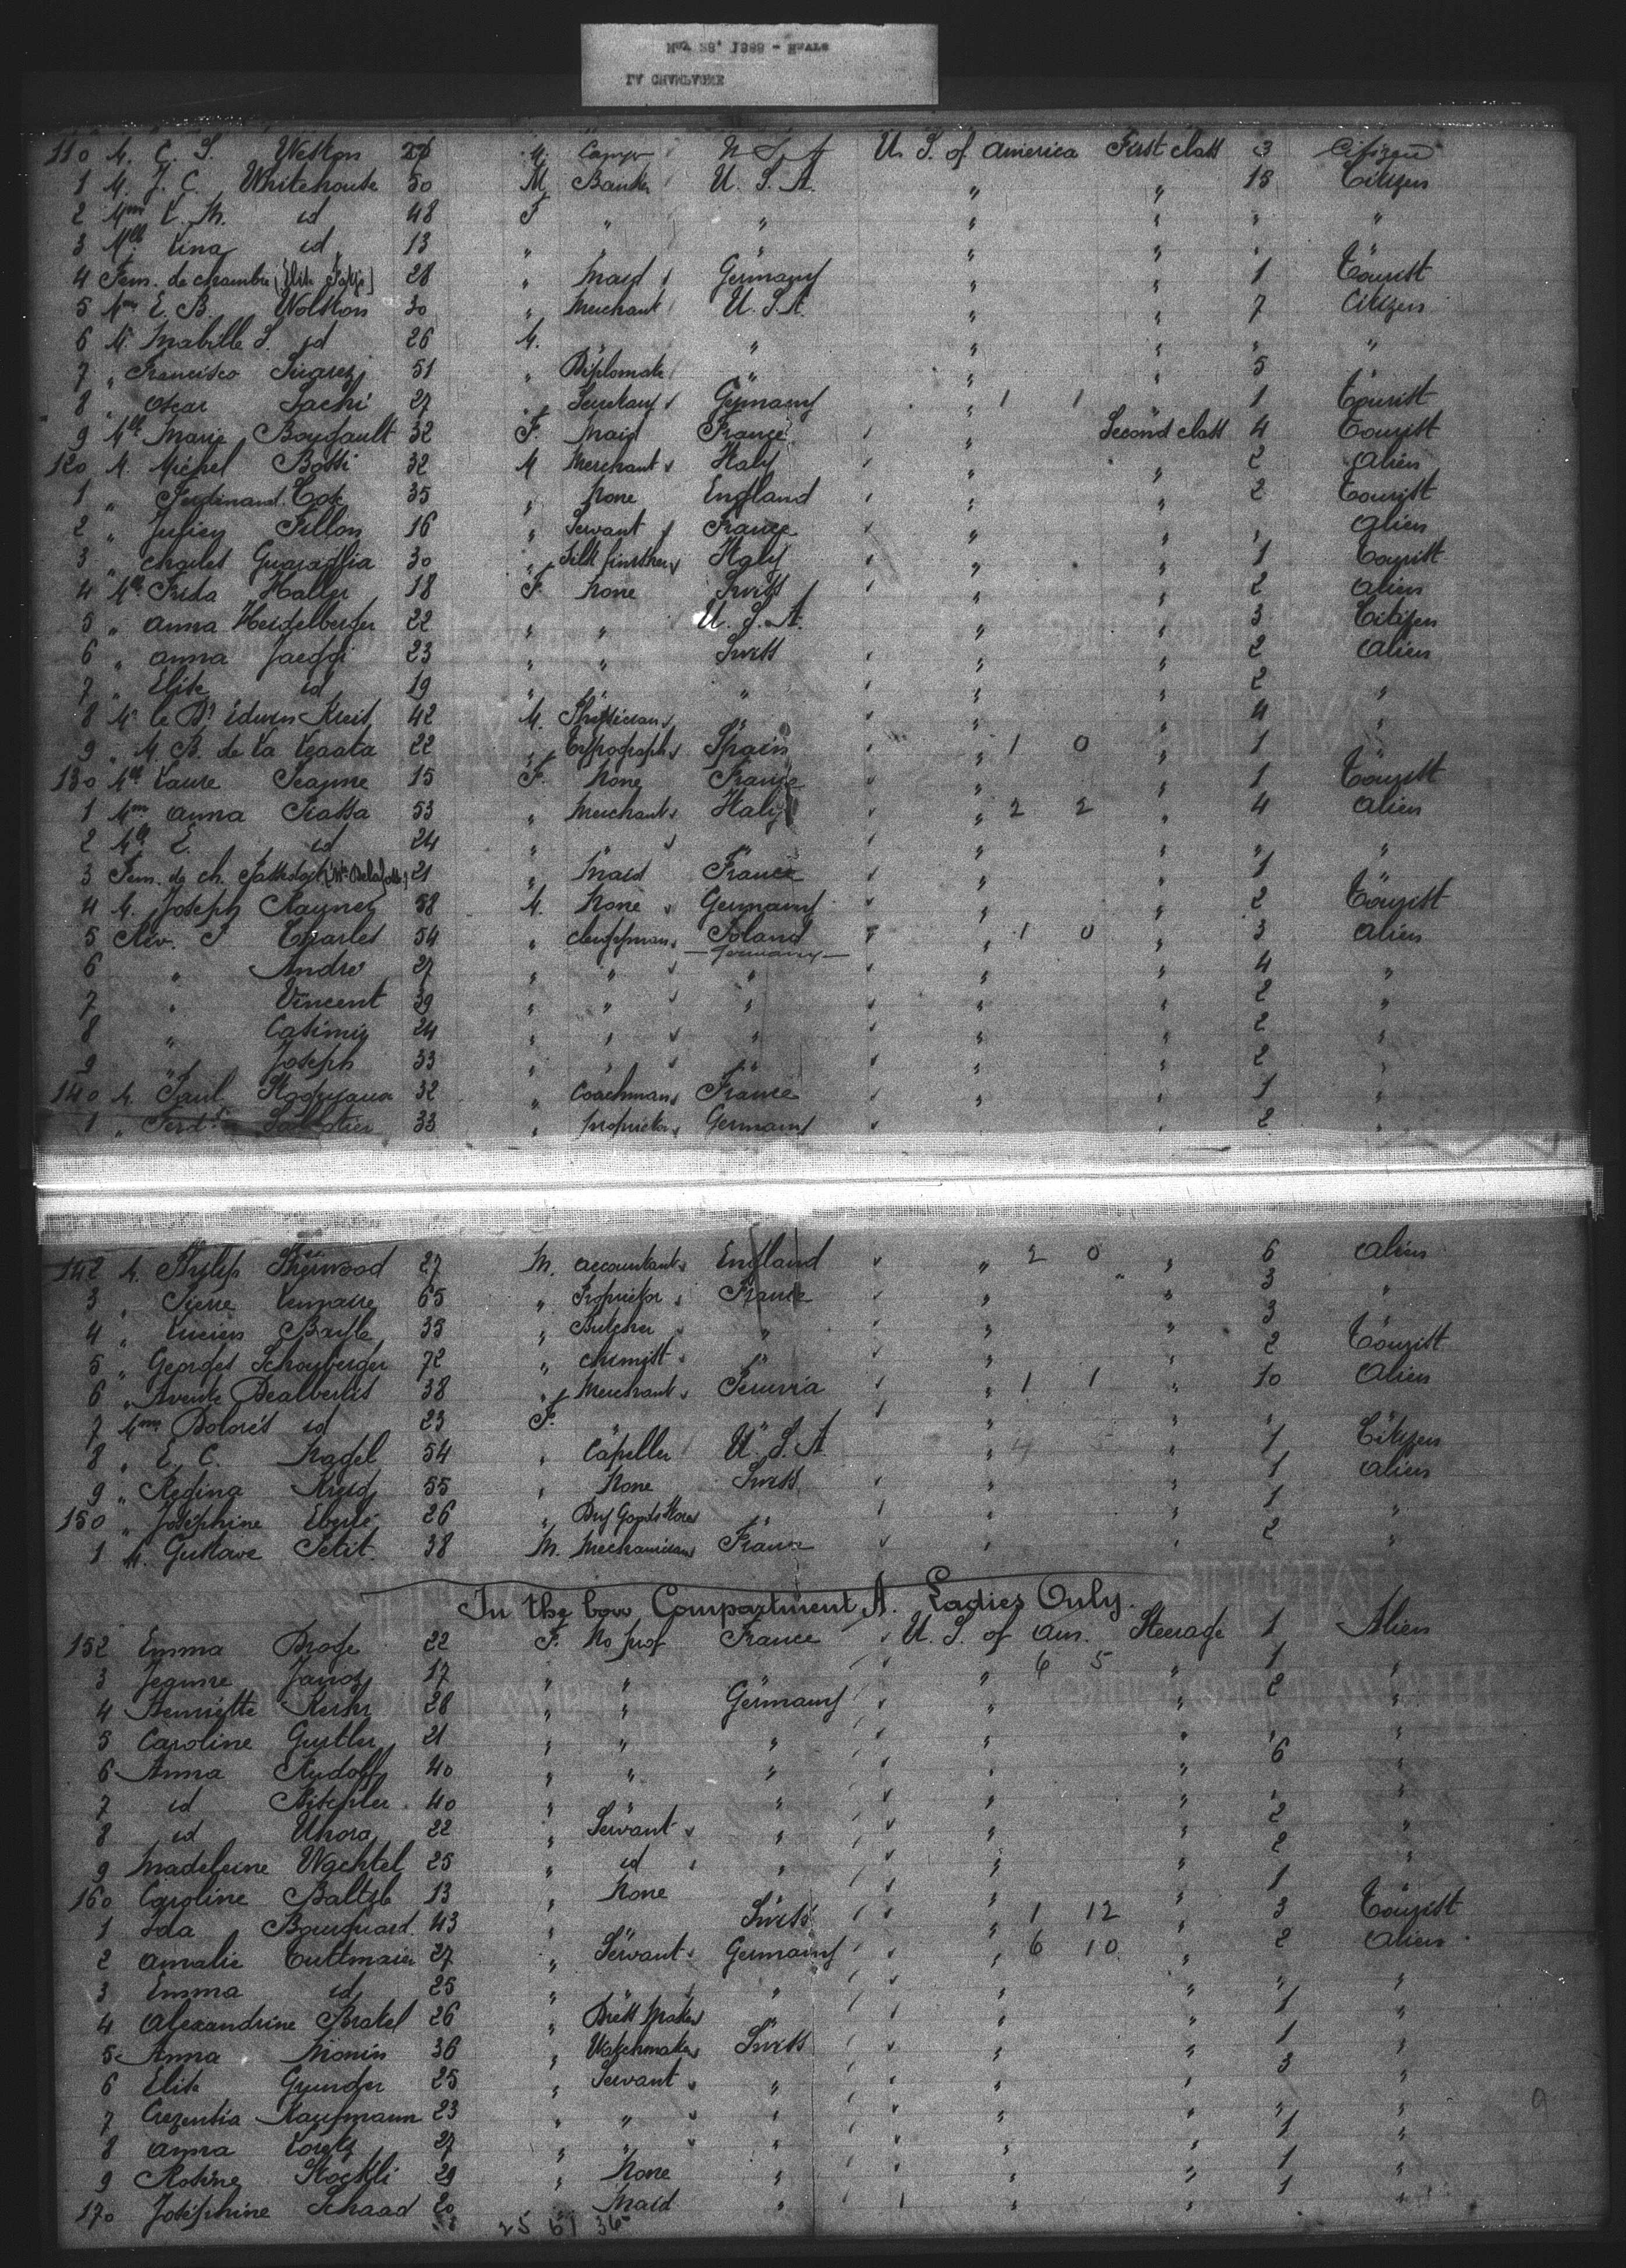 110 M. C. S. Weston M. U. S. of America First class 3 Citizen
1 M. J. C. Whitehouse 50 M Banker U. S. A. " " 15 Citizen
2 Mme L. M. id 48 F " " " " " "
3 Mlle Lina id 13 " " " " " "
4 Fem. de chambre 28 " Maid Germany " " 1 Tourist
5 Mme E. B. Wolston 30 " Merchant U. S. A. " " 7 Citizen
6 M. Mabille S. id 26 M. " " " " " "
7 " Francisco Suarez 51 " Diplomate " " " 5 "
8 " Oscar Sachi 27 " Secretary Germany " 1 1 " 1 Tourist
9 Mlle Marie Bourgault 32 F. Maid France " Second class 4 Tourist
120 M. Michel Bossi 32 M Merchant Italy " " 2 Alien
1 " Ferdinand 35 " None England " " 2 Tourist
2 " Julien Fillon 16 " Servant France " " " Alien
3 " Charles 30 " Silk finisher Italy " " 1 Tourist
4 Mlle Frida Haller 18 F None Swiss " " 2 Alien
5 " Anna Heidelberger 22 " " U. S. A. " " 3 Citizen
6 " Anna Jaeggi 23 " " Swiss " " 2 Alien
7 " Elise id 19 " " " " " 2 "
8 Mr le Dr Edwin Kreis 42 M. Physician " " " 4 "
9 " M B. de La 22 " Typograph Spain " 1 0 " 1 "
130 Mlle Laure Jeanne 15 F. None France " " 1 Tourist
1 Mme Anna Piassa 53 " Merchant Italy " 2 2 " 4 Alien
2 Mlle E. id 24 " " " " " " "
3 Fem. de ch. 21 " Maid France " " 1 "
4 M. Joseph Rayner 58 M. None Germany " " 2 Tourist
5 Rév. P Charles 54 " Clergyman Poland Germany " 1 0 " 3 Alien
6 " André 27 " " " " " 4 "
7 " Vincent 39 " " " " " 2 "
8 " Casimir 24 " " " " " 2 "
9 " Joseph 33 " " " " " 2 "
140 M. Paul 32 " Coachman France " " 1 "
1 " Ferd. 33 " proprietor Germany " " 2 "
142 M. Philip Sherwood 27 M. Accountant England " 2 0 " 6 Alien
3 " Pierre Lemaire 65 " Proprietor France " " 3 "
4 " Lucien Bayle 35 " Butcher " " " 3 "
5 " Georges Schouberger 72 " Chimist " " " 2 Tourist
6 " Dealbertis 38 " Merchant Peruvia " 1 1 " 10 Alien
7 Mme Dolorès id 23 F. " " " " " "
8 " E. C. Nagel 54 " U. S. A " " 1 Citizen
9 " Regina 55 " None Swiss " " 1 Alien
150 " Joséphine Eberlé 26 " Dry Goods Store " " " 1 "
1 M. Gustave Petit 38 M. Mechanician France " " 2 "
In the bow Compartment A. Ladies Only.
152 Emma 22 F. No prof France U. S. of Am. Steerage 1 Alien
3 Jeanne 17 " " " " 6 5 " 1 "
4 Henriette 28 " " Germany " " 2 "
5 Caroline Gurtler 21 " " " " " " "
6 Anna Rudolf 40 " " " " " 6 "
7 id 40 " " " " " " "
8 id Uhora 22 " Servant " " " 2 "
9 Madeleine Wachtel 25 " id " " " 2 "
160 Caroline 13 " None " " " 1 "
1 Ida Bourquard 43 " Swiss " 1 12 " 3 Tourist
2 Amalie Tuttmaier 27 " Servant Germany " 6 10 " 2 Alien
3 Emma id 25 " " " " " " "
4 Alexandrine Brakel 26 " Dress Maker " " " 1 "
5 Anna Monin 36 " Watchmaker Swiss " " 1 "
6 Elise 25 " Servant " " " 3 "
7 Crezentia Kaufmann 23 " " " " " " "
8 Anna 27 " " " " " 1 "
9 Rosine Stockli 29 " None " " " 1 "
170 Joséphine Schaad 20 " Maid " " " 1 "
25 61 36